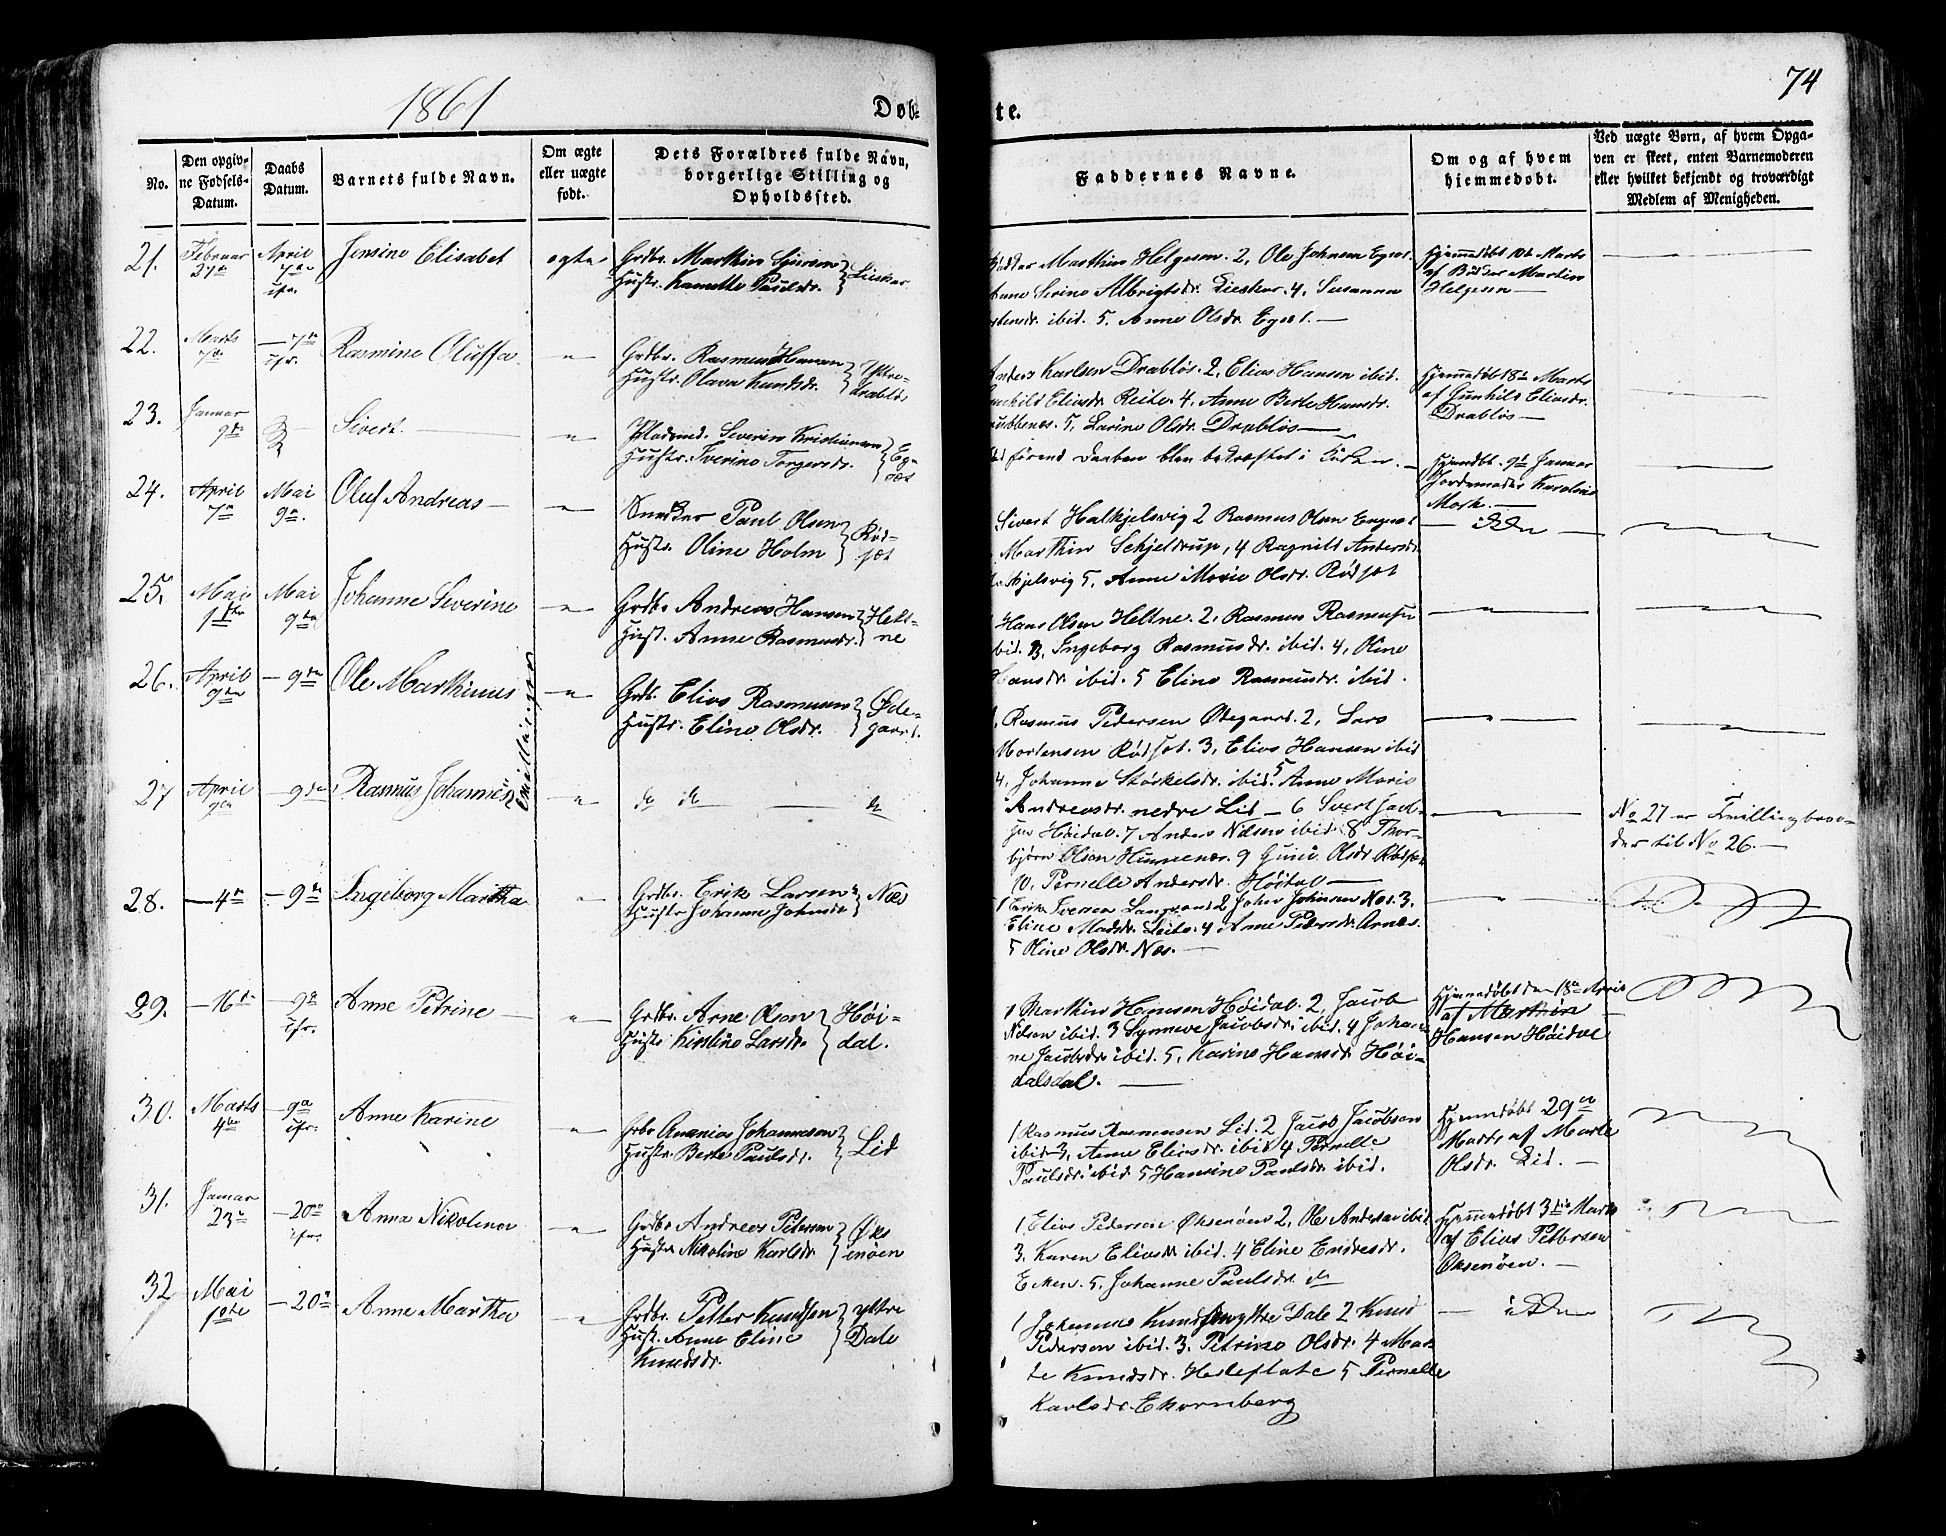 1861
Døb-
te.
74
No.
Den opgiv-
ne Fødsels-
Datum.
Daabs
Datum.
Barnets fulde Navn.
Om ægte
eller uægte
født.
Dets Forældres fulde Navn,
borgerlige Stilling og
Opholdssted.
Faddernes Navne.
Om og af hvem
hjemmedøbt.
Ved uægte Børn, af hvem Opga-
ven er skeet, enten Barnemoderen
eller hvilket bekjendt og troværdigt
Medlem af Menigheden.
21. Februar April Jensine Elisabet ægte Grdbr. Marthin
27de 7de Hustr. Paulsdr.
Marthin Helgesen. 2, Ole Johnsen
Anne Serine Albrigtsdr. 4, Susanna
ibid. 5, Anne Olsdr.
Hjemmedøbt 10de Marts
af Marthin
Helgesen
22. Marts 7de Rasmine Oluffa Grdbr. Rasmus Hansen Yttre-
7de Hustr. Olava Knudsdr. Drabløs
Anders Karlsen Drabløs. 2, Elias Hansen ibid.
Gunhild Eliasdr. Reite. 4, Anne Berte Hansdr.
5, Larine Olsdr. Drabløs
Hjemmedøbt 18de Marts
af Gunhild Eliasdr.
Drabløs
23. Januar Sivert. Pladsmd. Severin Kristiansen
9de Hustr. Iverine Torgersdr.
Daaben blev bekræftet i Kirken.
Hjemdbt. 9de Januar
Jordemoder Karoline
Mork.
24. April Mai Oluf Andreas Snedker Paul Olsen Rød-
7de 9de. Hustr. Oline Holm sæt
Sivert Halkjelsvig 2 Rasmus Olsen
Marthin Schjeldrup, 4 Ragnild Andersdr.
5, Anne Marie Olsdr. Rødsæt
ikke
25. Mai Mai Johanne Severine Grdbr. Andreas Hansen Helt-
1ste 9de Hust. Anne Rasmusdr. ne
Hans Olsen Heltne. 2, Rasmus Rasmussen
ibid. 3, Ingeborg Rasmusdr. ibid. 4, Oline
Hansdr. ibid. 5 Eline Rasmusdr. ibid.
26. April 9de Ole Marthinus Grdb. Elias Rasmusen Øde-
9de Hustr. Eline Olsdr. gaard.
Rasmus Pedersen Ødegaard. 2, Lars
Mortensen Rødsæt. 3, Elias Hansen ibid
4, Johanne Størkelsdr. ibid. 5 Anne Marie
27 April 9de Rasmus Johannes do do do
9de
Andreasdr. nedre Lid 6 Sivert
Høidal. 7 Anders Nilsen ibid. 8 Thor-
bjørn Olsen 9 Olsdr Rødsæt
10. Pernelle Andersdr. Høidal
No 27 er Tvillingbro-
der til No 26.
28. 4de 9de Ingeborg Martha Grdbr. Erik Larsen Næs
Hustr Johanne Johnsdr
1 Erik Iversen 2 John Johnsen Næs. 3.
Eline Madsdr. 4 Anne Pedersdr. Aarnes.
5 Oline Olsdr. Næs.
29. 16de 9de Anne Petrine Grdbr. Arne Olsen Høi-
Hustr Kirstine Larsdr. dal.
1 Marthin Hansen Høidal. 2, Jacob
Nilsen ibid. 3 Synneve Jacobsdr. ibid. 4 Johan-
ne Jacobsdr ibid. 5, Karine Hansdr. Høi-
dalsdal.
Hjemmedøbt den 18de April
af Marthin
Hansen Høidal
30. Marts 9de Anne Karine Ananias Johannesen Lid
4de Hustr. Berte Paulsdr.
1 Rasmus Rasmussen Lid. 2 Jacob Jacobsen
ibid 3, Anne Eliasdr. ibid 4 Pernelle
Paulsdr. ibid 5 Hansine Paulsdr. ibid.
Hjemmedøbt 29de
Marts af Marte
Olsdr. Lid.
31. Januar 20de Anna Nikolina Grdbr Andreas Petersen Øks
23de Hustr. Nikoline Karlsdr. enøen
1, Elias Pedersen Øksenøen 2, Ole Andersen ibid.
3. Karen Eliasdr. ibid. 4 Eline Endresdr.
5, Johanne Paulsdr. do
Hjemmedøbt 31te Marts
af Elias Pettersen
Øksenøen.
32 Mai 20de Anne Martha Grdbr. Petter Knudsen yttre
1ste Hust. Anne Eline Dale
Knudsdr.
1 Johannes Knudsen yttre Dale 2 Knud
Pedersen ibid. 3. Petrine Olsdr. 4 Mar-
te Knudsdr. 5 Pernelle
Karlsdr. Ekornberg
ikke